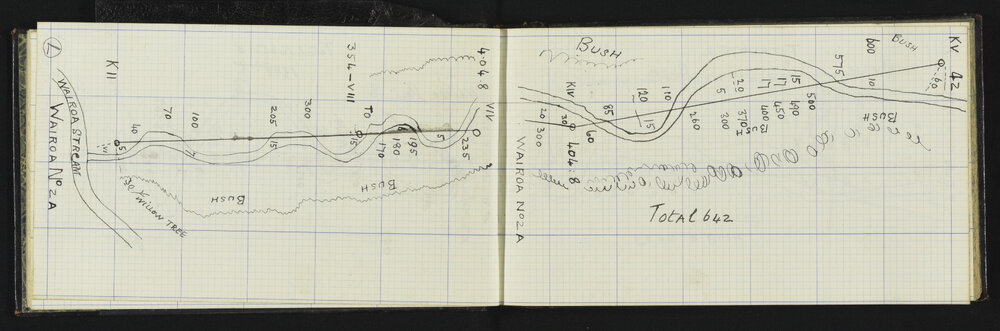 7
WAIROA STREAM
WAIROA No 2 A
KII
5
40
70
100
7
205
15
300
354-VIII
15
70
6
170
180
195
5
404.8
VIV
235
BUSH
BUSH
WILLOW TREE
WAIROA No 2 A
BUSH
20
300
KIV
30
404.8
60
85
120
15
110
260
20
5
300
370
BUSH
17
400
17
450
15
490
500
575
600
10
BUSH
BUSH
KV
42
60
TOTAL 642